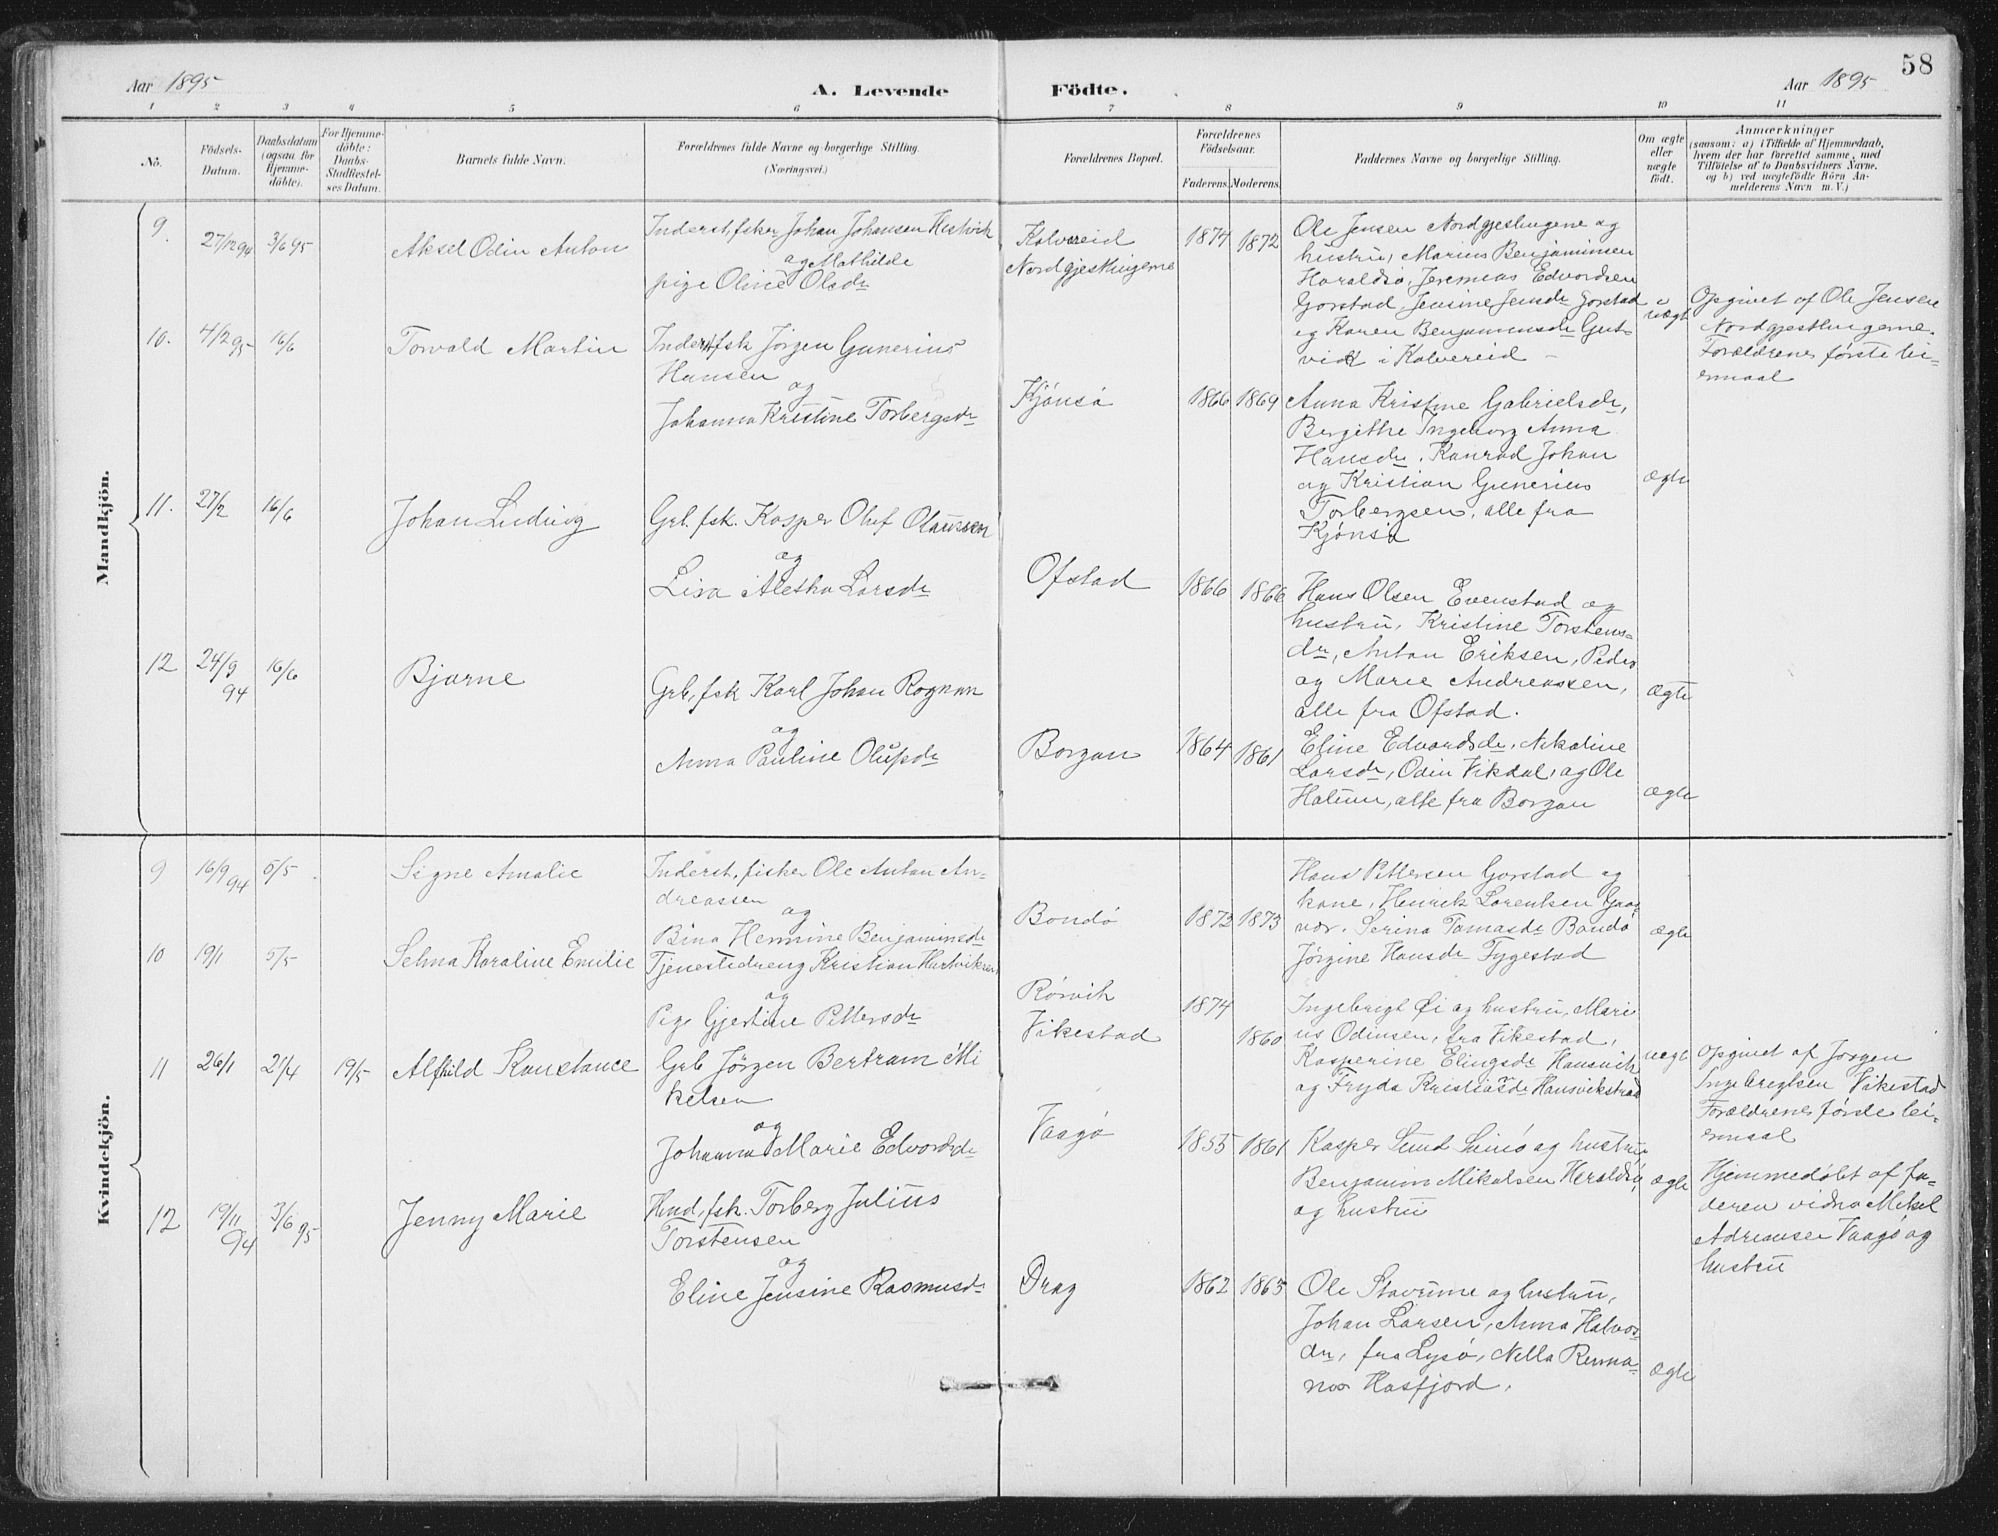 58
Aar 1895
A. Levende Födte.
Aar 1895
1 2 3 4 5 6 7 8 9 10 11
No.
Födsels-
Datum.
Daabsdatum
(ogsaa for
Hjemme-
döbte).
For Hjemme-
döbte:
Daabs-
Stadfæstel-
ses Datum.
Barnets fulde Navn.
Forældrenes fulde Navne og borgerlige Stilling.
(Næringsvei.)
Forældrenes Bopæl.
Forældrenes
Födselsaar.
Faderens. Moderens.
Faddernes Navne og borgerlige Stilling.
Om ægte
eller
uægte
födt.
Anmærkninger
(saasom: a) i Tilfælde af Hjemmedaab,
hvem der har forrettet samme, med
Tilföielse af to Daabsvidners Navne.
og b) ved uægtefödte Börn An-
melderens Navn m. V.)
Mandkjön.
9.
27/12 94
3/6 95
Aksel Odin Anton
Inderst, fisker Johan Johansen Hestvik
og Mathilde
pige Oline Olsdr
Kolvereid
Nordgjeslingerne
1874 1872
Ole Jensen Nordgjeslingene og
hustru, Marius Benjaminsen
Haraldsø, Jeremeas Edvardsen
Gorstad, Jensine Jensdr Gorstad
og Karen Benjaminsdr Gut-
vik i Kolvereid
uægte
Opgivet af Ole Jensen
Nordgjeslingerne.
Forældrenes første lei-
ermaal
10.
4/2 95
16/6
Torvald Martin
Inderst, fsk Jörgen Gunerius
Hansen
og
Johanna Kristine Torbergsdr
Kjönsö
1866 1869
Anna Kristine Gabrielsdr,
Bergithe Ingeborg Anna
Hansdr, Konrad Johan
og Kristian Gunerius
Torbergsen, alle fra
Kjønsø
ægte
11.
27/2
16/6
Johan Ludvig
Grb. fsk. Kasper Oluf Olaussen
og
Lisa Aletha Larsdr
Ofstad
1866 1866
Hans Olsen Evenstad og
hustru, Kristine Torstens-
dr, Anton Eriksen, Peder
og Marie Andreassen,
alle fra Ofstad.
ægte
12
24/9 94
16/6
Bjarne
Grb, fsk Karl Johan Rognan
og
Anna Pauline Olufsdr
Borgan
1864 1861
Eline Edvardsdr, Nikoline
Larsdr, Odin Vikdal, og Ole
Halum, alle fra Borgan
ægte
Kvindekjön.
9
16/9 94
5/5
Signe Amalie
Inderst, fisker Ole Anton An-
dreassen
og
Bina Hermine Benjaminsdr
Bondø
1872 1873
Hans Pettersen Gorstad og
kone, Henrik Lorentsen Gaas-
vær. Serina Tomasdr Bondø
Jørgine Hansdr Fygestad
ægte
10
19/1
5/5
Selma Karaline Emilie
Tjenestedreng Kristian Hartviksen
og
Pige Gjertine Pettersdr
Rörvik
Vikestad
1874
1860
Ingebrigt Øi og hustru, Mari
us Odinsen, fra Vikestad,
Kasperine Elingsdr Hansvik
og Fryda Kristiansdr Hansvikstrand
uægte
opgivet af Jørgen
Ingebregtsen Vikestad
Forældrenes første lei-
ermaal
11
26/1
21/4
19/5
Alfhild Konstance
Grb Jörgen Bertram Mi
kelsen
og
Johanna Marie Edvardsdr
Vaagø
1855 1861
Kasper Sund og hustru
Benjamin Mikalsen Heraldsø,
og hustru
ægte
Hjemmedøbt af fa-
deren vidne Mikal
Adreansen Vaagø og
hustru
12
19/11 94
3/6 95
Jenny Marie
Hmd, fsk. Torberg Julius
Torstensen
og
Eline Jensine Rasmusdr
Drag
1862 1865
Ole Stavrum og hustru,
Johan Larsen, Anna Halvos-
dr, fra Lysø, Nella
Hasfjord.
ægte